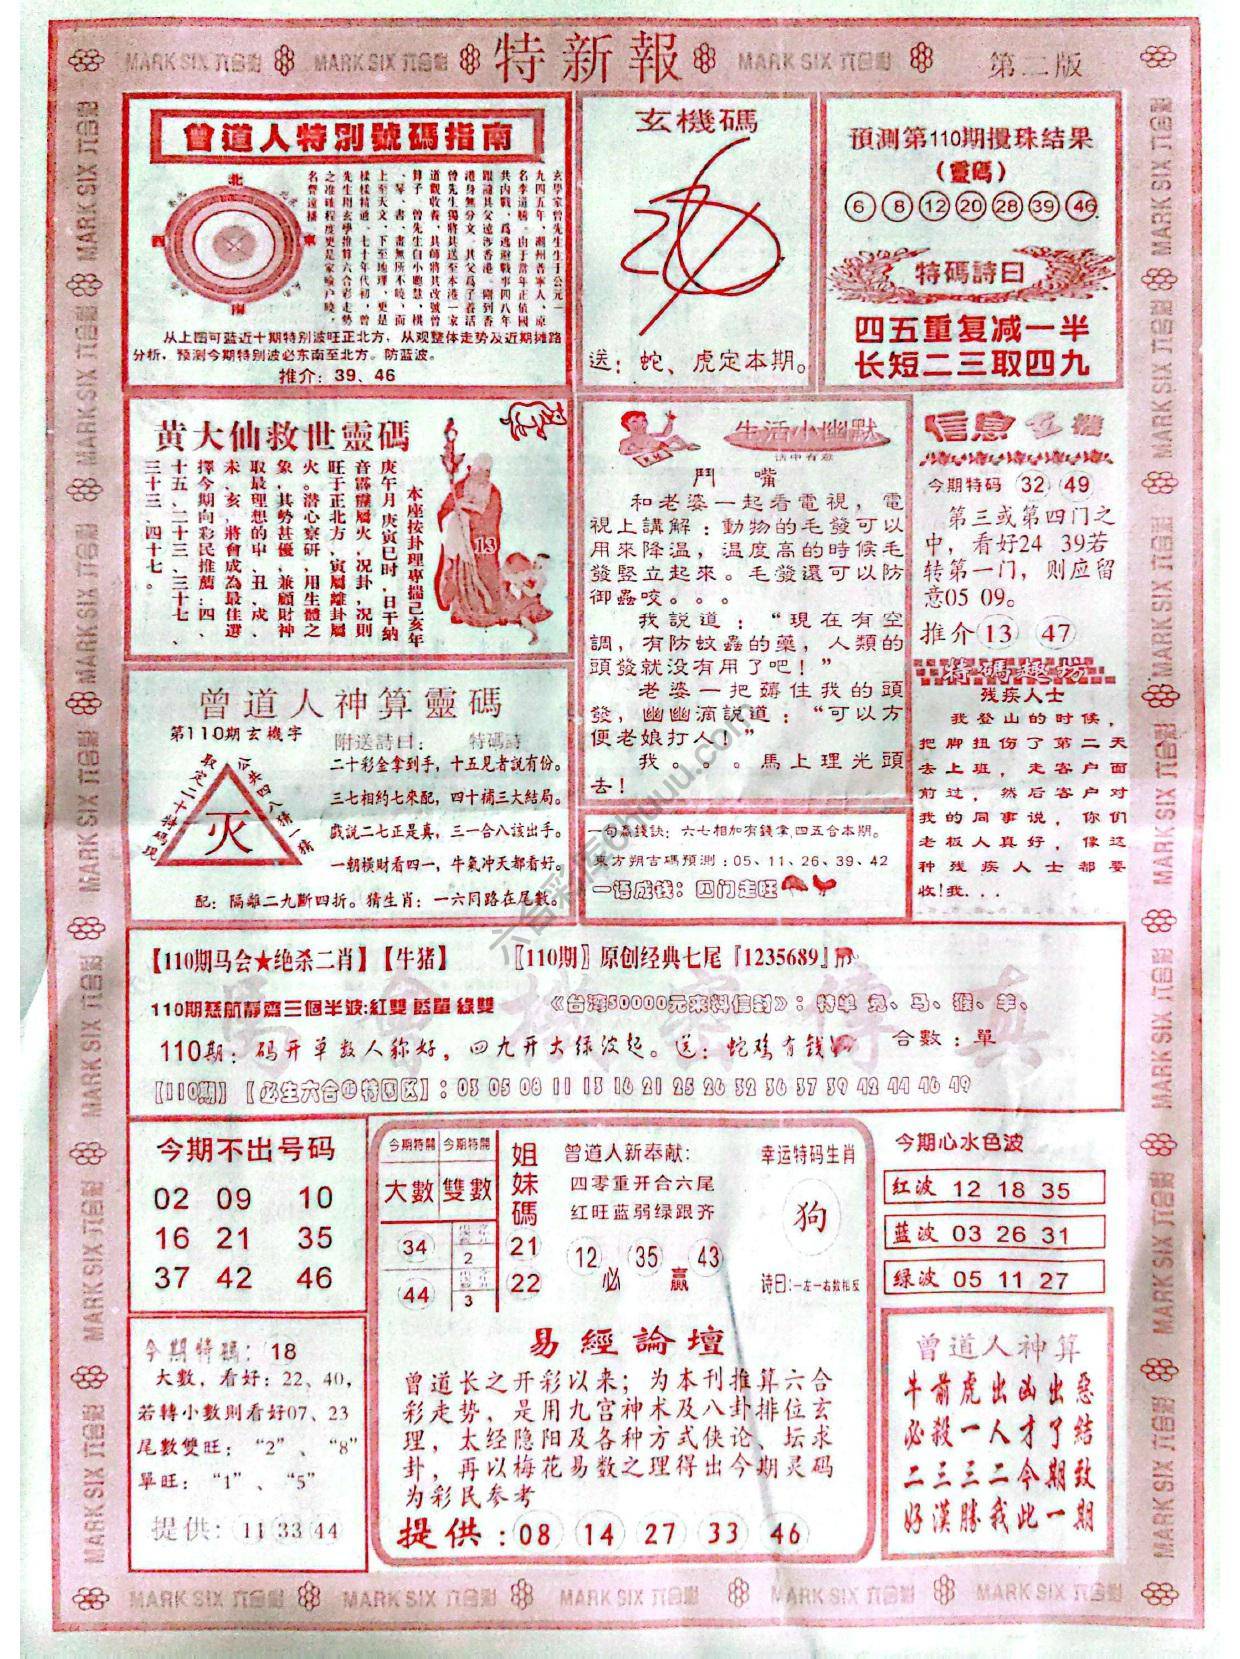 特新報
第二版
MARK SIX 六合彩
曾道人特別號碼指南
北
西
東
南
玄學家曾先生生于公元一
九四五年，潮州普寧人，原
名李道勝。由于當年正值國
共內戰，爲逃避戰事四八年
跟隨其父遠涉香港。剛到香
港身無分文，其父爲了養活
曾先生獨將其送至本港一家
道觀收養，其師將其改號曾
算子。曾先生自小聰慧，棋
、琴、書、畫無所不曉，而
上至天文，下至地理，更是
樣樣精通。七十年代初，曾
先生用玄學推算六合彩走勢
之准確程度更是家喻户曉，
名聲遠播
从上图可蓝近十期特别波旺正北方，从观整体走势及近期摊路
分析，预测今期特别波必东南至北方。防蓝波。
推介：39、46
玄機碼
送：蛇、虎定本期。
預測第110期攪珠結果
(靈碼)
6 8 12 20 28 39 46
特碼詩曰
四五重复减一半
长短二三取四九
黃大仙救世靈碼
本座按卦理專攟己亥年
庚午月 庚寅巳时，日干纳
音霹靂屬火，况卦，况則
旺于正北方，寅屬離卦屬
火。潜心察研，用生體之
象，其勢甚優，兼顧財神
取最理想的申、丑、戌、
未、亥，將會成為最佳選
擇今期向彩民推薦：四、
十五、二十三、三十七、
三十三、四十七。
13
生活小幽默
鬥 嘴
和老婆一起看電視，電
視上講解：動物的毛發可以
用來降温，温度高的時候毛
發竪立起來。毛發還可以防
御蟲咬。。。
我説道：“現在有空
調，有防蚊蟲的藥，人類的
頭發就没有用了吧！”
老婆一把薅住我的頭
發，幽幽滴説道：“可以方
便老娘打人！”
我。。。馬上理光頭
去！
信息玄機
今期特码 32 49
第三或第四门之
中，看好24 39若
转第一门，则应留
意05 09。
推介 13 47
特碼趣坊
残疾人士
我登山的时候，
把脚扭伤了第二天
去上班，走客户面
前过，然后客户对
我的同事说，你们
老板人真好，像这
种残疾人士都要
收!我...
曾道人神算靈碼
第110期玄機字
附送詩曰： 特碼詩
取定二十特碼現
公共四八猜一猜
灭
二十彩金拿到手，十五見者説有份。
三七相約七來配，四十補三大結局。
戲説二七正是真，三一合八該出手。
一朝横財看四一，牛氣冲天都看好。
配：隔離二九斷四折。猜生肖：一六同路在尾數。
一句贏錢訣：六七相加有錢拿,四五合本期。
東方朔吉碼預測：05、11、26、39、42
一语成钱：四门走旺
【110期马会★绝杀二肖】【牛猪】
〖110期〗原创经典七尾『1235689』
110期慈航靜齋三個半波:紅雙 藍單 綠雙
《台湾50000元来料信封》：特单 兔、马、猴、羊、
110期：码开单数人称好，四九开大绿波起。送：蛇鸡有钱
合數：單
【110期】【必生六合㊣特围区】：03 05 08 11 13 16 21 25 26 32 36 37 39 42 44 46 49
馬會機密傳真
今期不出号码
02 09 10
16 21 35
37 42 46
今期特開 今期特開
大數 雙數
34
2
44
3
姐妹碼
21
22
曾道人新奉献:
四零重开合六尾
红旺蓝弱绿跟齐
12 35 43
必 贏
幸运特码生肖
狗
詩曰:一左一右数相反
今期心水色波
红波 12 18 35
蓝波 03 26 31
绿波 05 11 27
今期特碼：18
大數，看好：22、40，
若轉小數則看好07、23
尾數雙旺：“2”、“8”
單旺：“1”、“5”
提供：11 33 44
易經論壇
曾道长之开彩以来；为本刊推算六合
彩走势，是用九宫神术及八卦排位玄
理，太经隐阳及各种方式侠论、坛求
卦，再以梅花易数之理得出今期灵码
为彩民参考
提供：08 14 27 33 46
曾道人神算
牛前虎出凶出惡
必殺一人才了結
二三三二今期致
好漢勝我此一期
六合彩库cnuuu.com